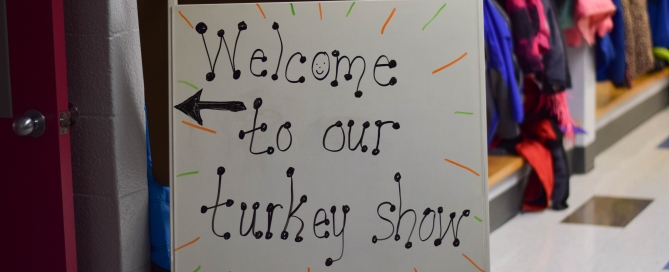 Welcome
to our
turkey show